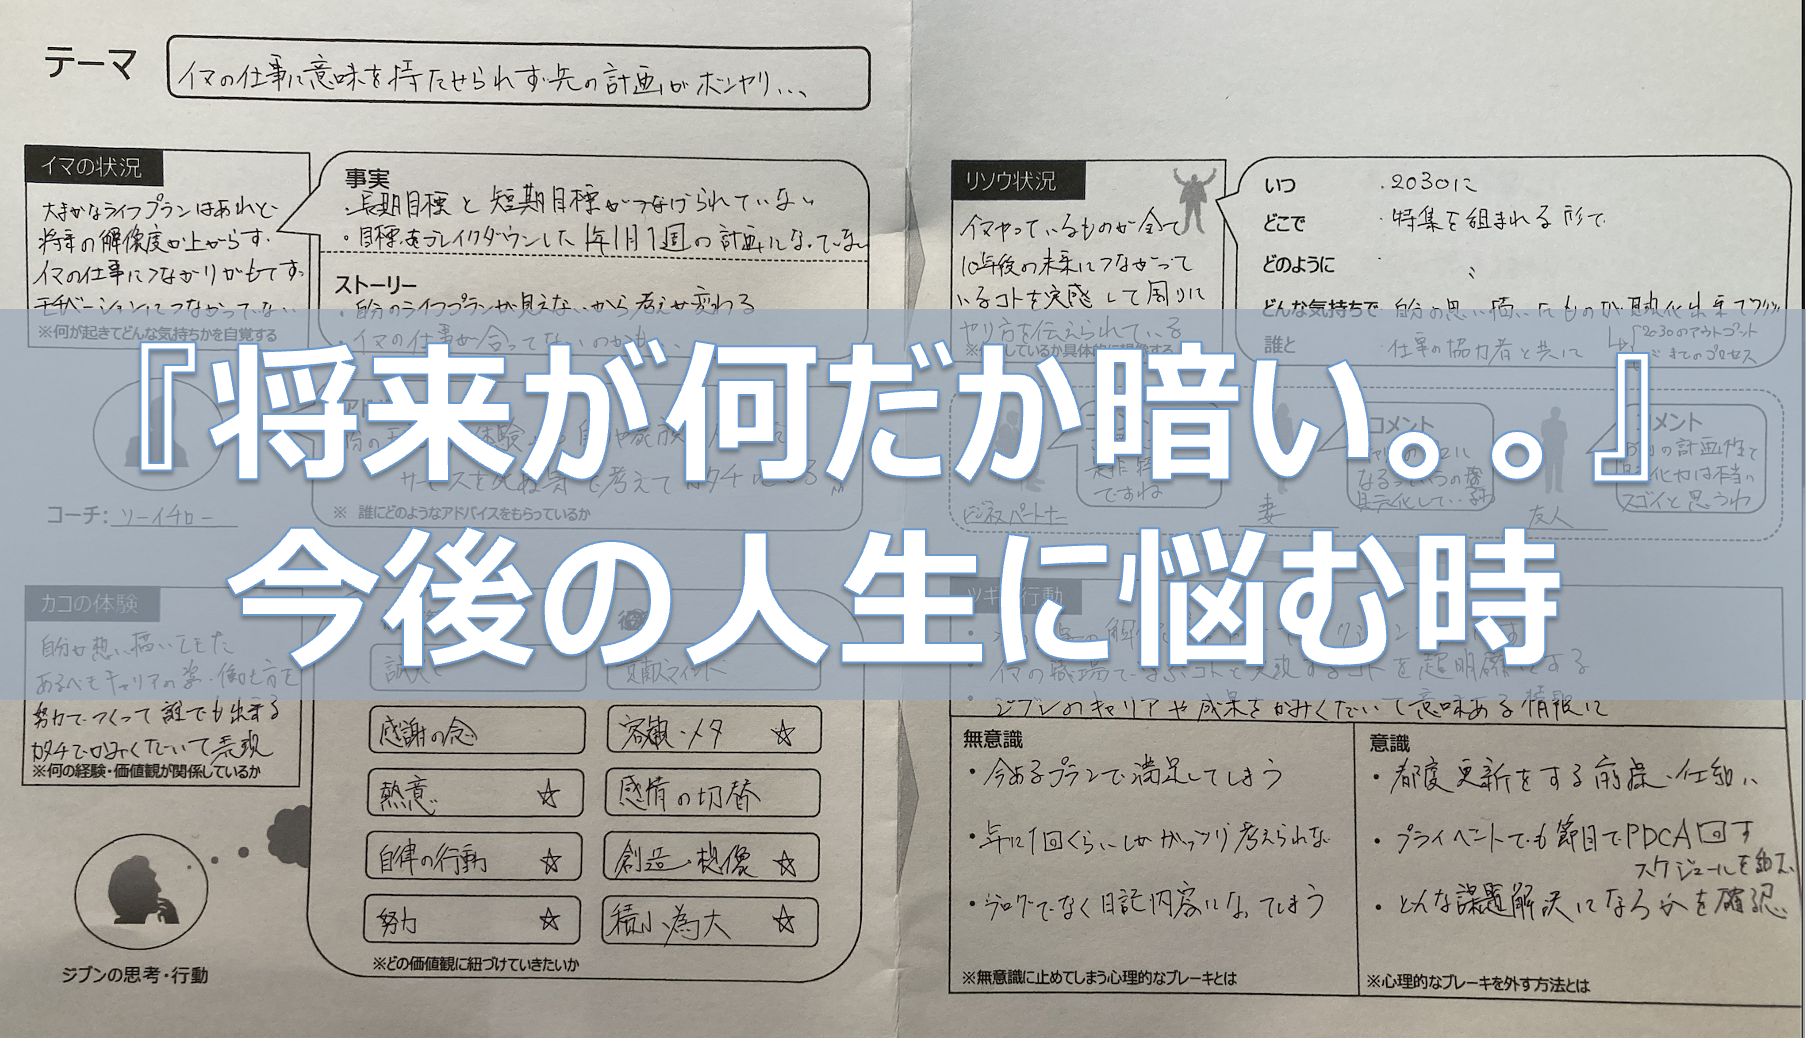 テーマ
イマの仕事に意味を持たせられず先の計画がボンヤリ...
イマの状況
大まかなライフプランはあれど
将来の解像度が上がらず、
イマの仕事につながりがもてず、
モチベーションにつながってない
※何が起きてどんな気持ちかを自覚する
事実
・長期目標と短期目標がつなげられていない
・目標をブレイクダウンした1年1月1週の計画になってない
ストーリー
・自分のライフプランが見えないから考えが変わる
・イマの仕事が合ってないのかも...
リソウ状況
イマやっているものが全て
10年後の未来につながって
いるコトを実感して周りに
やり方を伝えられている
いつ
・2030に
どこで
・特集を組まれる形で
どのように
どんな気持ちで
自分の思い描いたものが具現化出来てワクワク
2030のアウトプット
までのプロセス
誰と
・仕事の協力者と共に
『将来が何だか暗い。。』
今後の人生に悩む時
サービスを死ぬ気で考えてカタチにする
※ 誰にどのようなアドバイスをもらっているか
コーチ: ソーイチロー
コメント
ですね
ビジネスパートナー
コメント
妻
コメント
スゴイと思うわ
友人
カコの体験
自分が思い描いてきた
あるべきキャリアの姿・働き方を
努力でつくって誰でも出来る
カタチでかみくだいて表現
※何の経験・価値観が関係しているか
ジブンの思考・行動
貢献マインド
感謝の念
客観・メタ ☆
熱意 ☆
感情の切替
自律の行動 ☆
創造・想像 ☆
努力 ☆
積小為大 ☆
※どの価値観に紐づけていきたいか
・イマの職場で学ぶコトと実現するコトを超明確にする
・ジブンのキャリアや成果をかみくだいて意味ある情報に
無意識
・今あるプランで満足してしまう
・年に1回くらいしかガッツリ考えられない
・ブログでなく日記内容になってしまう
※無意識に止めてしまう心理的なブレーキとは
意識
・都度更新をする前提、仕組み
・プライベートでも節目でPDCA回す
スケジュールを組む
・どんな課題解決になるかを確認
※心理的なブレーキを外す方法とは